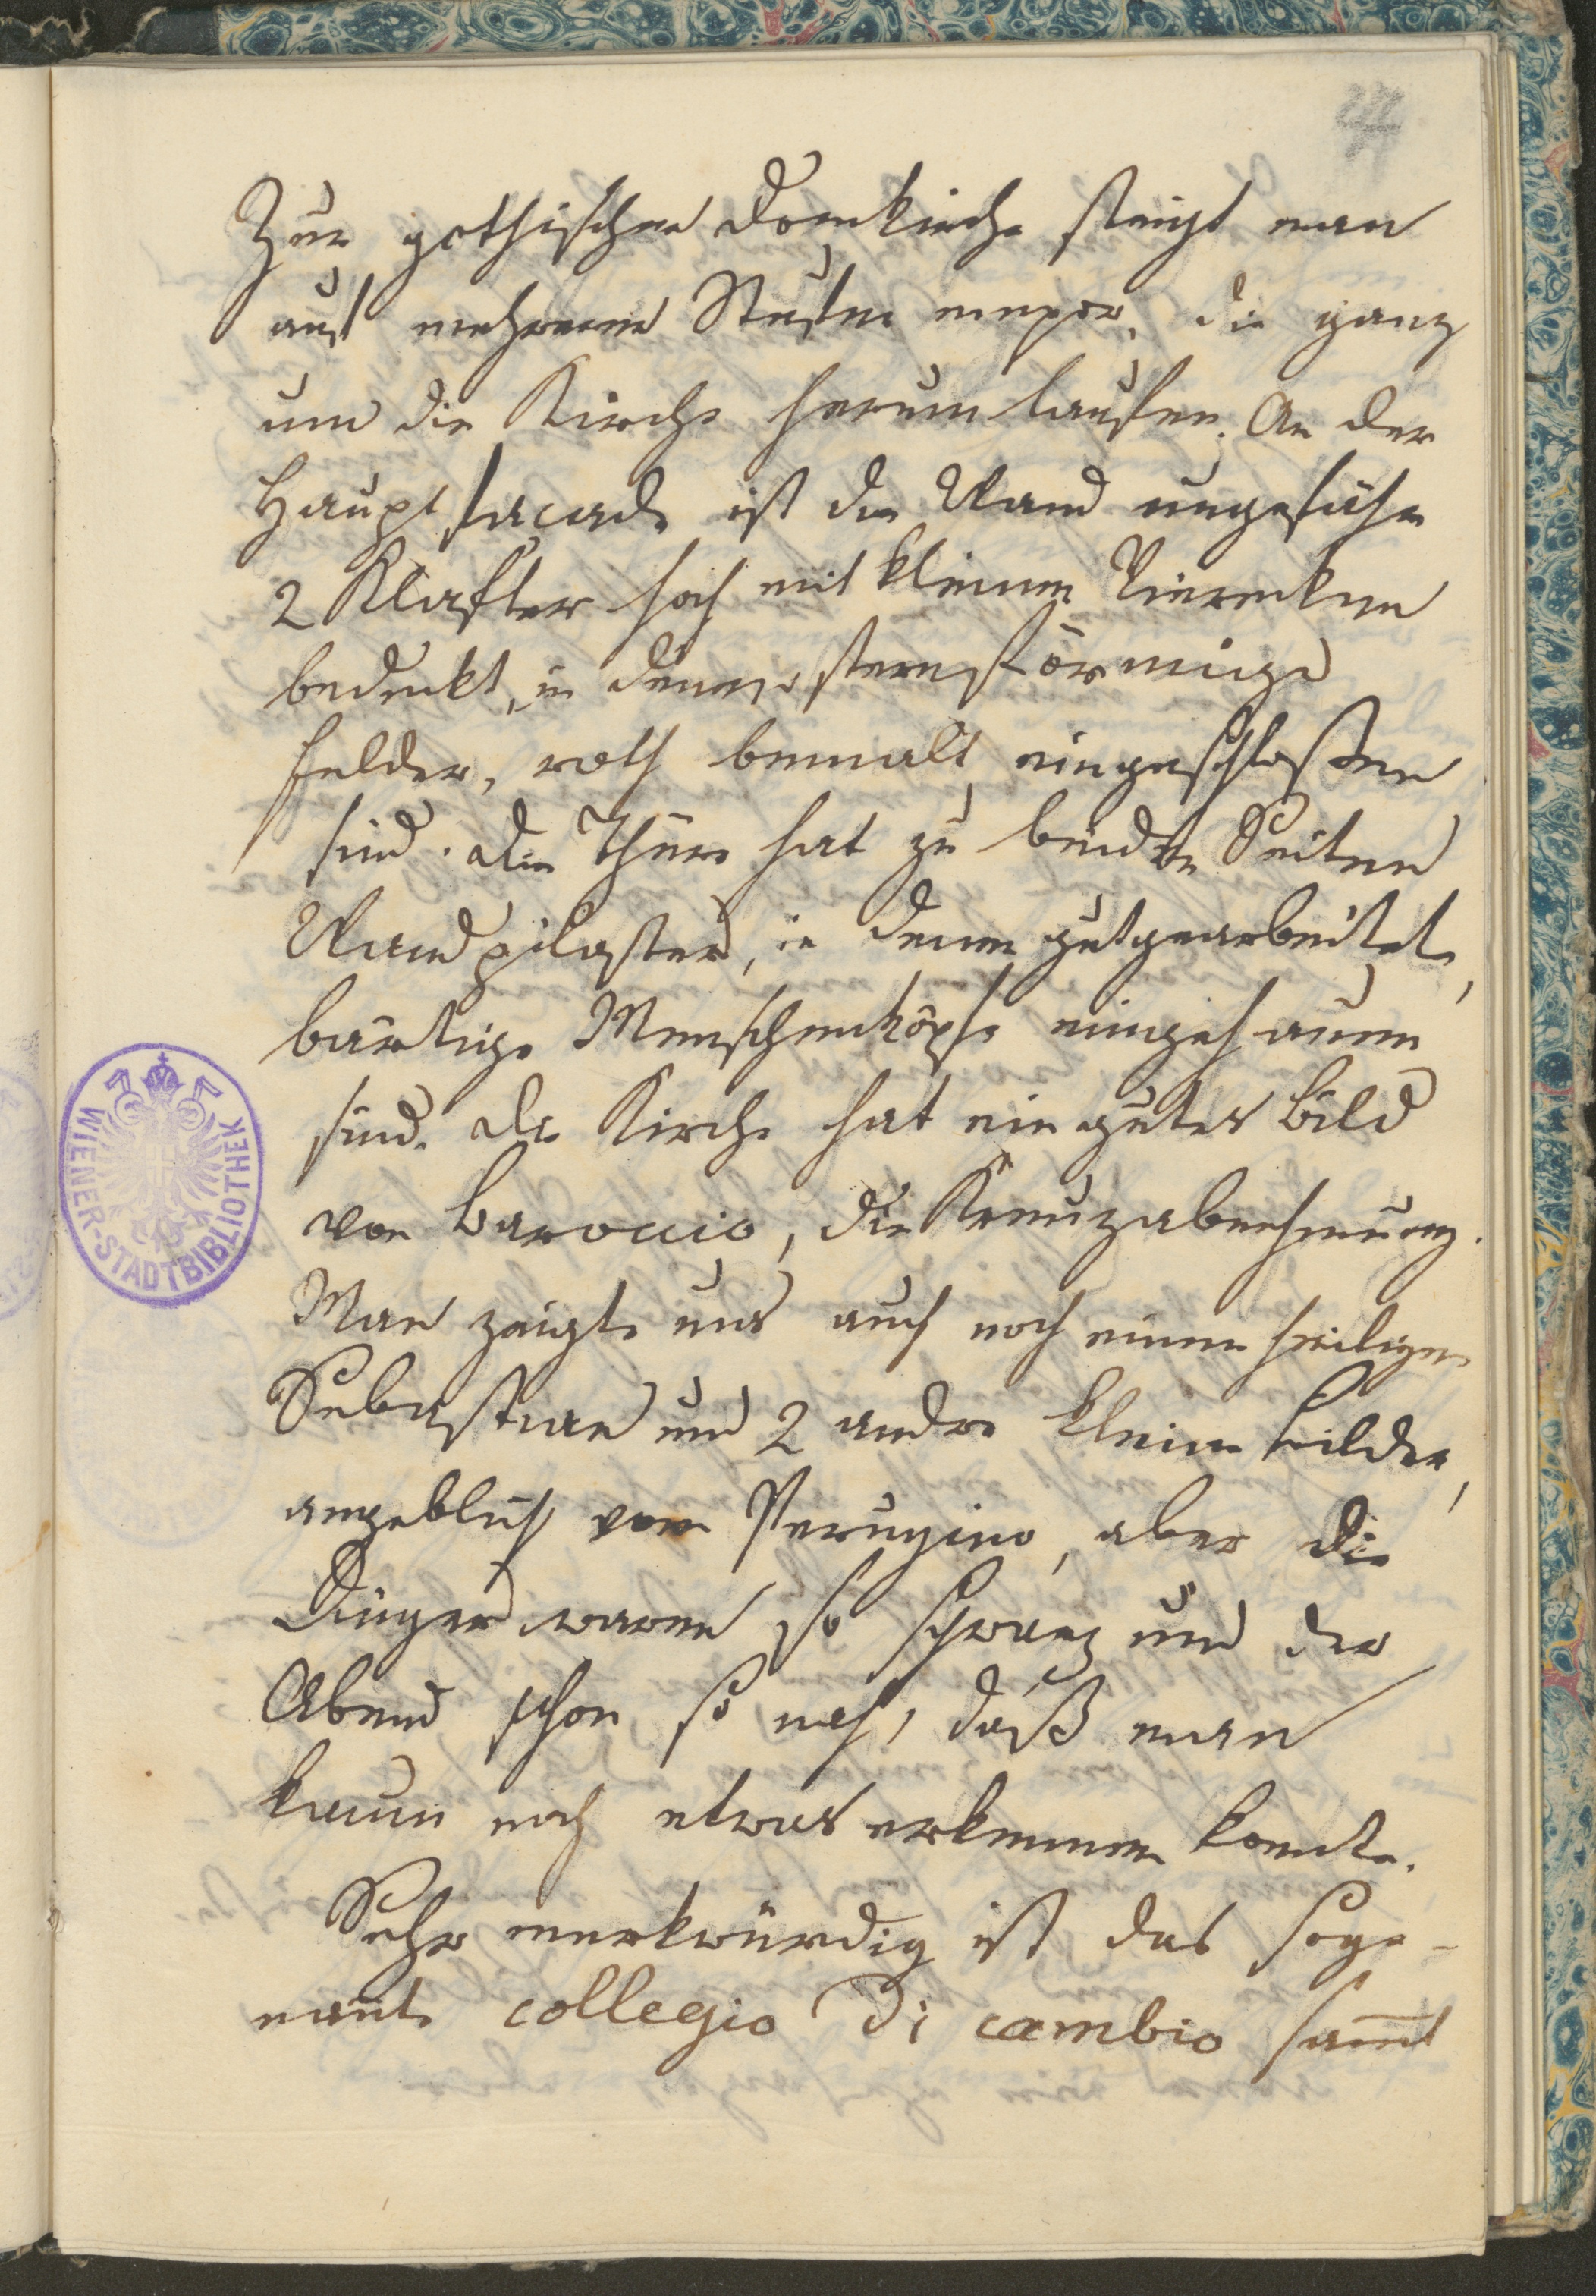 Zur gothischen Domkirche steigt man
auf mehreren Stufen empor, die ganz
um die Kirche herum laufen. An der
Hauptfacade ist die Wand ungefähr
2 Klafter hoch mit kleinen Vierecken
bedeckt, in denen sternförmige
Felder, roth bemalt eingeschlossen
sind. Die Thüre hat zu beiden Seiten
Wandpilaster, in denen gutgearbeitete,
bärtige Menschenköpfe eingehauen
sind. Die Kirche hat ein gutes Bild
von Baroccio, die Kreuzabnehmung.
Man zeigte uns auch noch einen heiligen
Sebastian und 2 andre kleine Bilder,
angeblich von Perugino, aber die
Dinger waren so schwarz und der
Abend schon so nah, daß man
kaum noch etwas erkennen konnte.
Sehr merkwürdig ist das soge-
nannte collegio di cambio sam̅t
WIENER-STADTBIBLIOTHEK